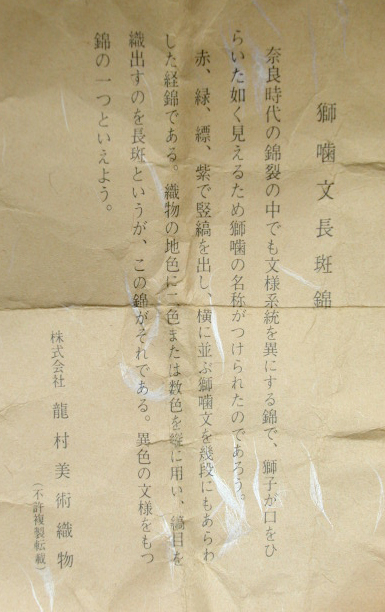 獅噛文長斑錦
奈良時代の錦裂の中でも文様系統を異にする錦で、獅子が口をひ
らいた如く見えるため獅噛の名称がつけられたのであろう。
赤、緑、縹、紫で竪縞を出し、横に並ぶ獅噛文を幾段にもあらわ
した経錦である。織物の地色に二色または数色を縦に用い、縞目を
織出すのを長斑というが、この錦がそれである。異色の文様をもつ
錦の一つといえよう。
株式会社 龍村美術織物
(不許複製転載)